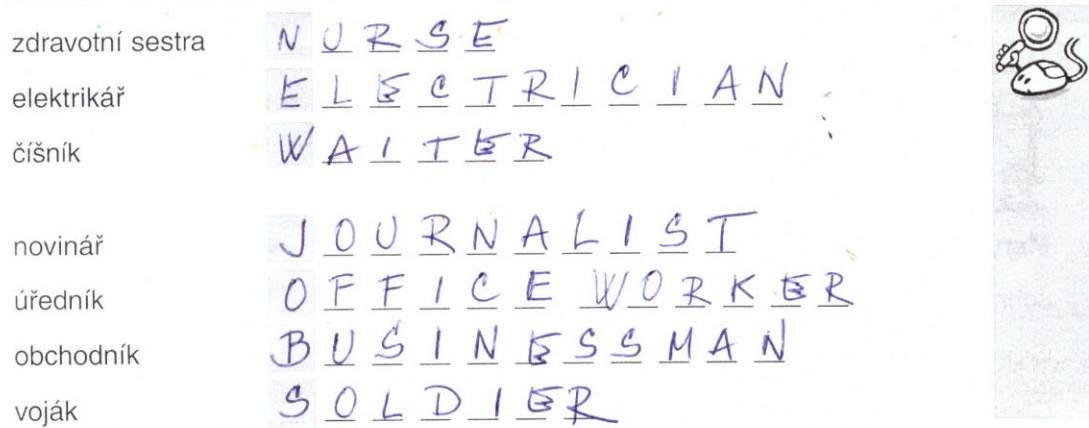 zdravotní sestra NURSE
elektrikář ELECTRICIAN
číšník WAITER
novinář JOURNALIST
úředník OFFICE WORKER
obchodník BUSINESSMAN
voják SOLDIER